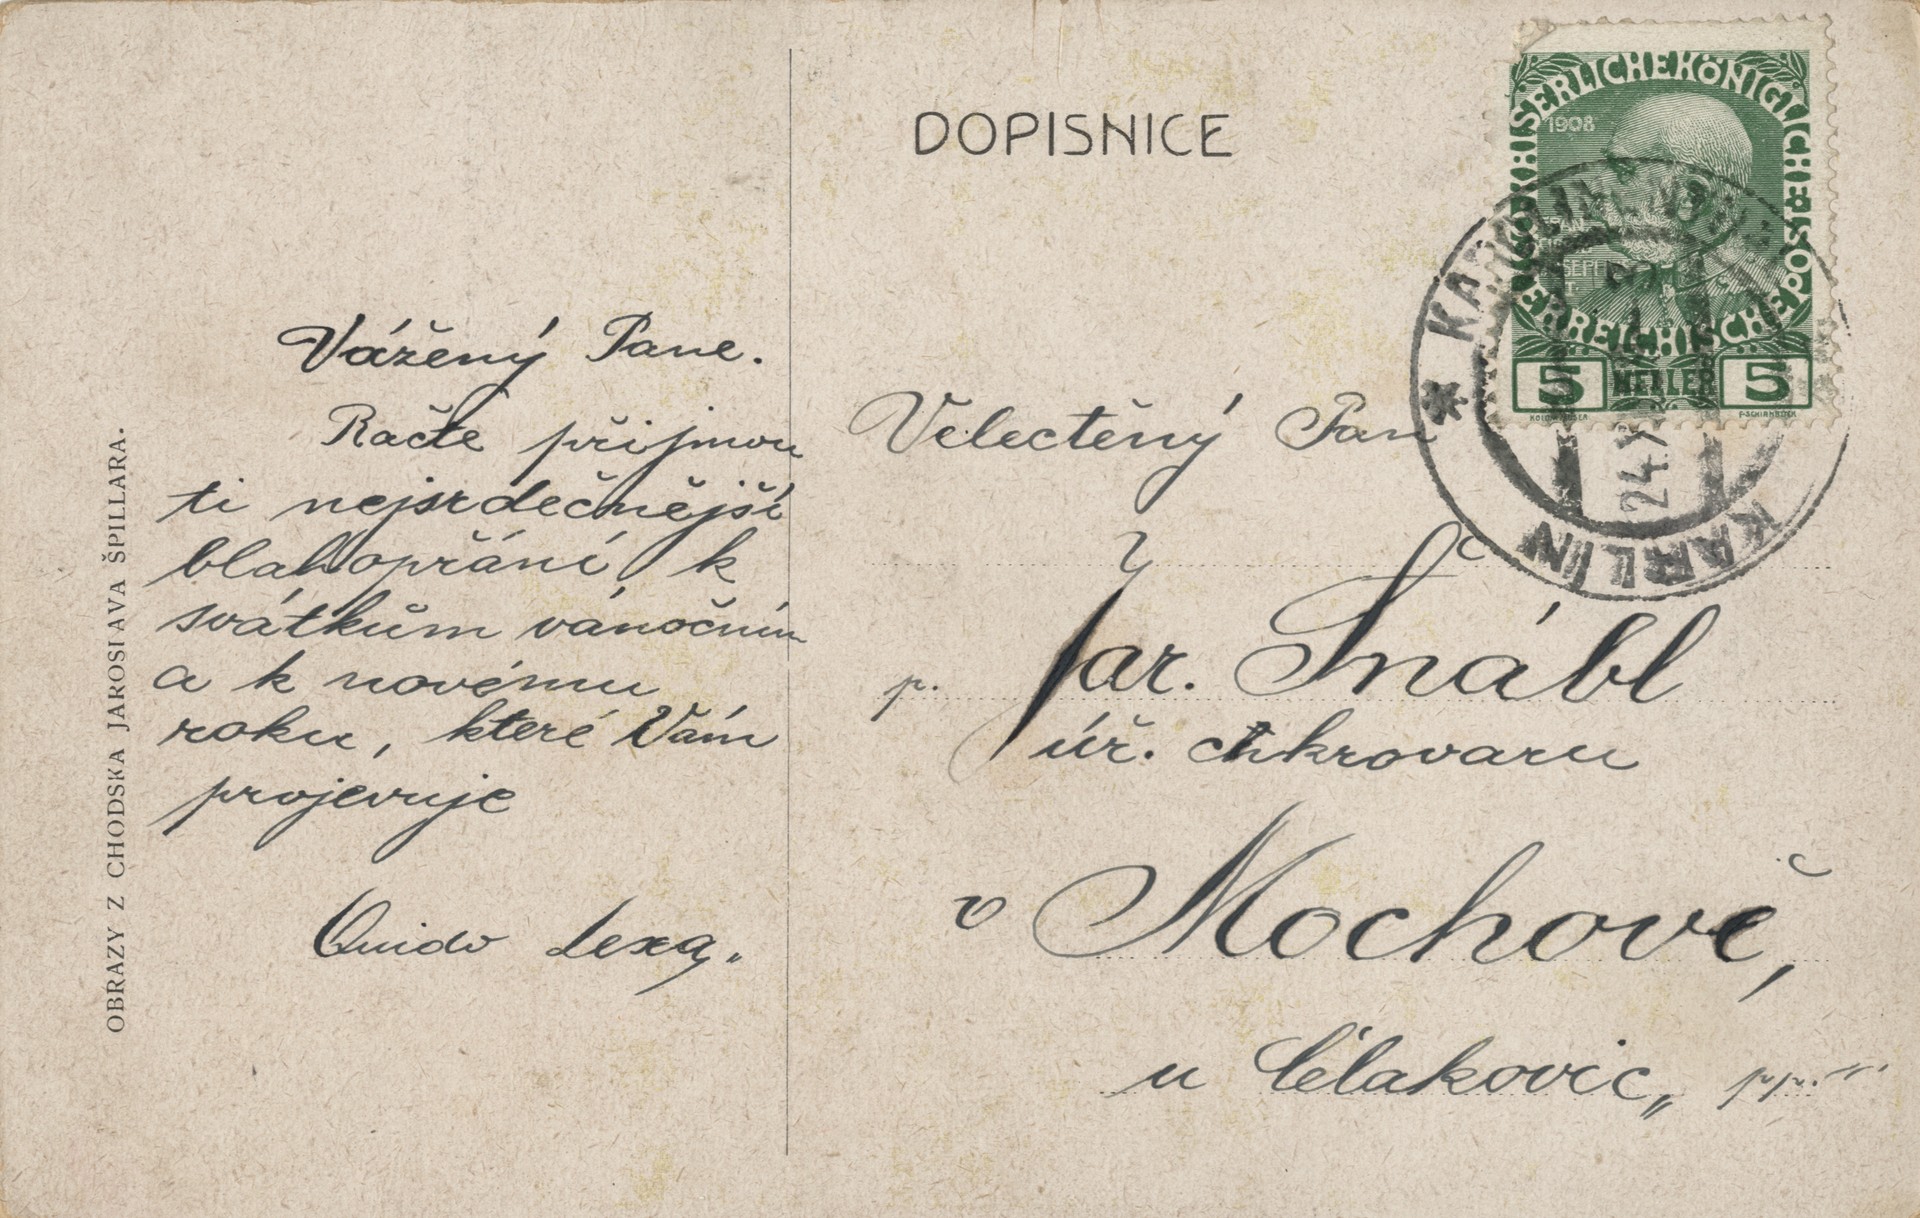 DOPISNICE
OBRAZY Z CHODSKA JAROSLAVA ŠPILLARA.
Vážený Pane.
Račte přijmou
ti nejsrdečnější
blahopřání, k
svátkům vánočním
a k novému
roku, které Vám
projevuje
Quido Lexa„
Velectěný Pan
p. Jar. Šnábl
úř. cukrovaru
v Mochově,
u Čelakovic„
KAISERLICHE KÖNIGLICHE ÖSTERREICHISCHE POST
1908
5 HELLER 5
* KAROLINENTHAL
24.X
KARLÍN